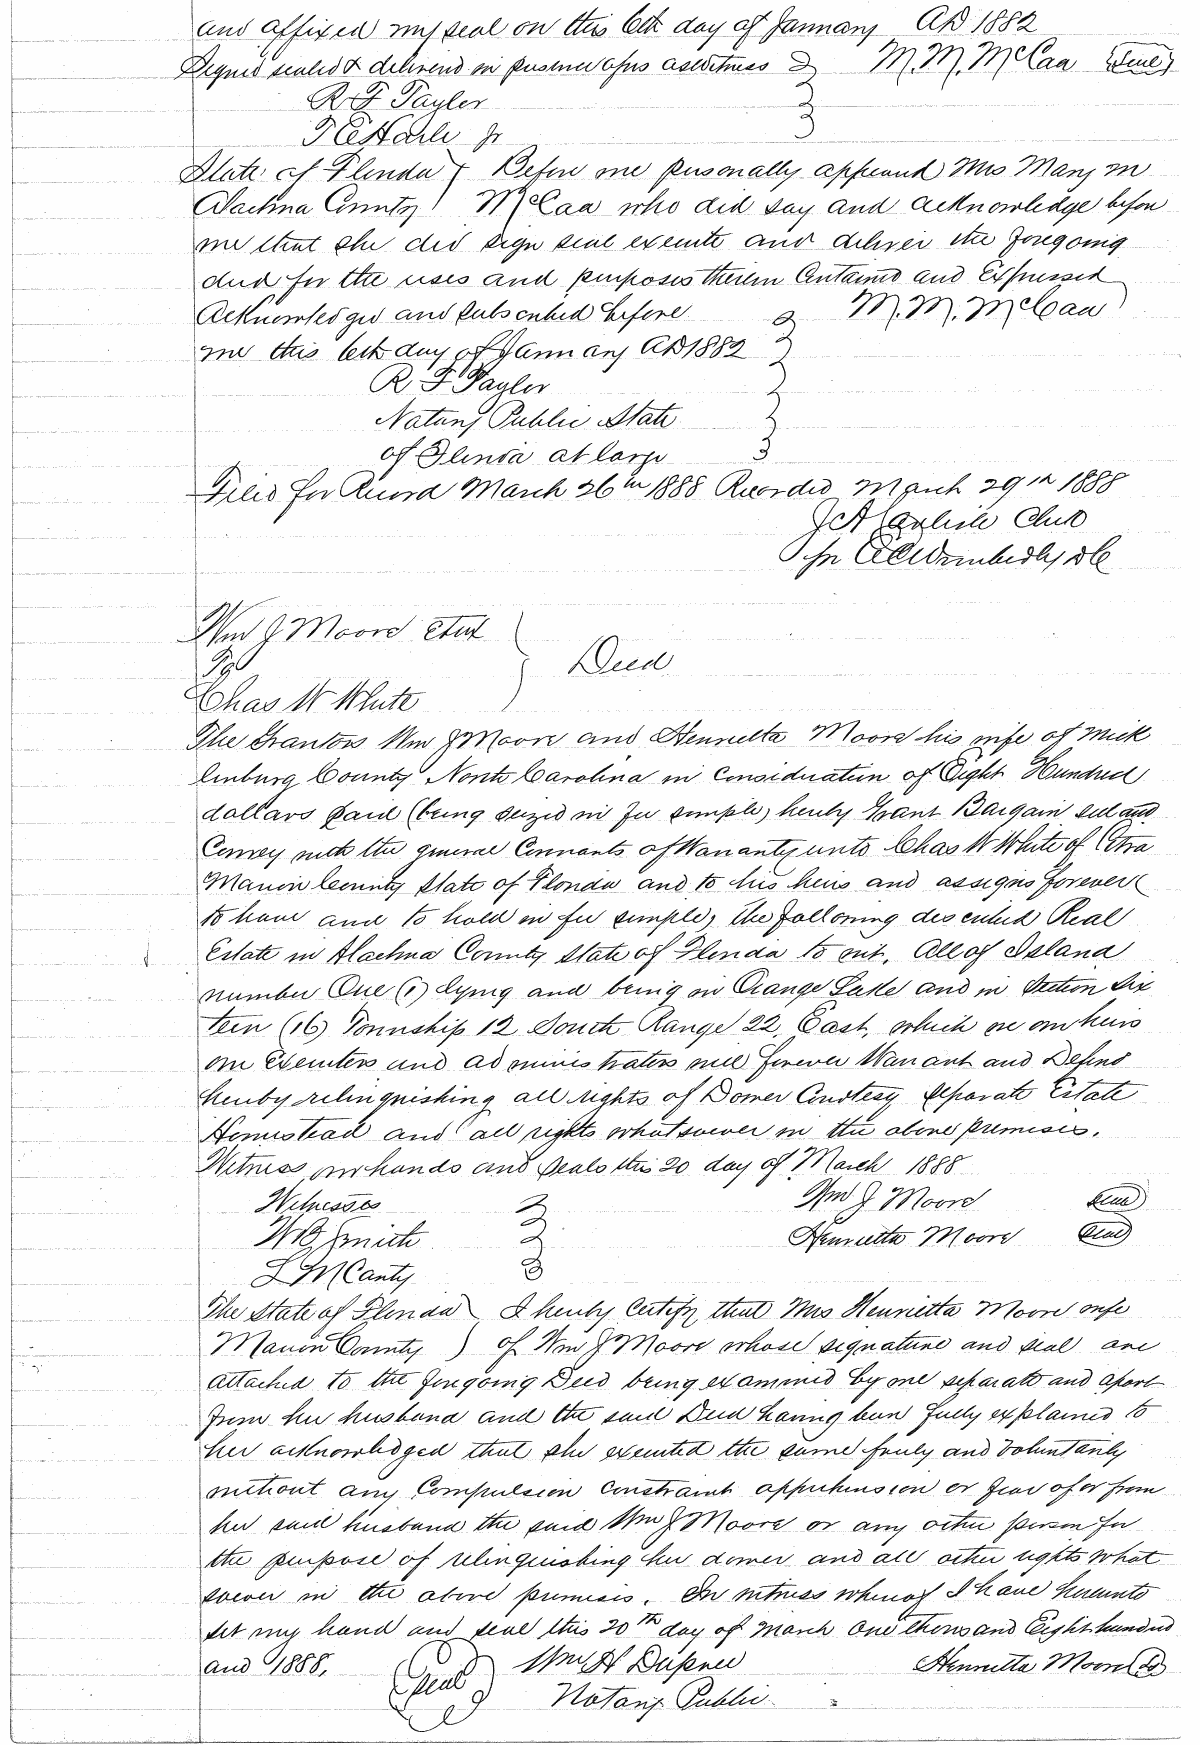 and affixed my seal on this 6th day of January AD 1882
Signed sealed & delivered in presence of us as witness M. M. McCaa (Seal)
R F Tayler
State of Florida } Before me personally appeared Mrs Mary M
Alachua County } McCaa who did say and acknowledge before
me that she did sign seal execute and deliver the foregoing
deed for the uses and purposes therein Contained and Expressed
Acknowledged and subscribed before M. M. McCaa
me this 6th day of January AD 1882
R F Tayler
Notary Public State
of Florida at large
Filed for Record March 26th 1888 Recorded March 29th 1888
J A Carlisle Clerk
Wm J Moore et ux
To } Deed
Chas W White
The Grantors Wm J Moore and Henrietta Moore his wife of Meck
linburg County North Carolina in Consideration of Eight Hundred
dollars paid (being seized in fee simple) hereby Grant Bargain sell and
Convey with the general Covenants of Warranty unto Chas W White of Citra
Marion County State of Florida and to his heirs and assigns forever
to have and to hold in fee simple, the following described Real
Estate in Alachua County State of Florida to wit. All of Island
number One (1) lying and being in Orange Lake and in Section Six
teen (16) Township 12 South Range 22, East, which we our heirs
our Executors and administrators will forever Warrant and Defend
hereby relinquishing all rights of Dower Courtesy Separate Estate
Homestead and all rights whatsoever in the above premises.
Witness our hands and seals this 20 day of March 1888
Witnesses Wm J Moore (Seal)
W B Smith Henrietta Moore (Seal)
L M Canty
The State of Florida } I hereby Certify, that Mrs Henrietta Moore wife
Marion County } of Wm J Moore whose signature and seal are
attached to the foregoing Deed being examined by me separate and apart
from her husband and the said Deed having been fully explained to
her acknowledged that she executed the same freely and voluntarily
without any Compulsion constraint apprehension or fear of or from
her said husband the said Wm J Moore or any other person for
the purpose of relinquishing her dower and all other rights what
soever in the above premises. In witness whereof I have hereunto
set my hand and seal this 20th day of March One thousand Eight hundred
and 1888, (Seal) Wm H Henrietta Moore
Notary Public